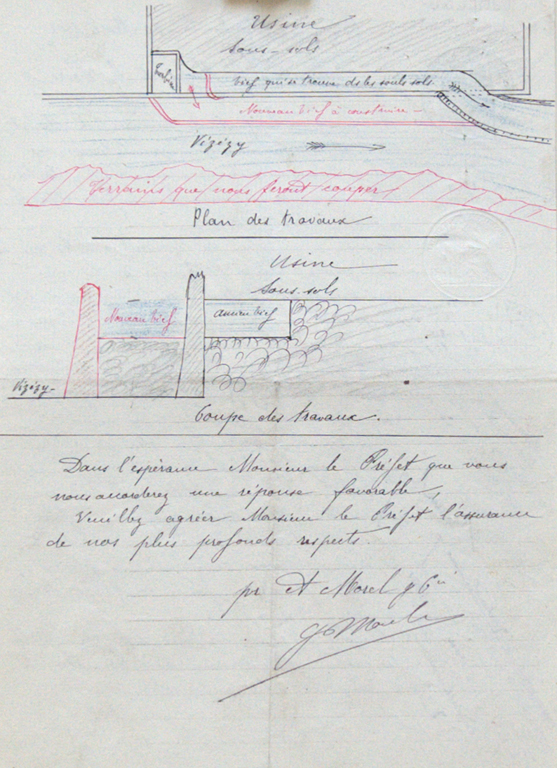 Usine
Sous-sols
bief qui se trouve ds les souls sols
Nouveau bief à construire
Vizézy
Terrains que nous feront couper
Plan des travaux
Usine
Sous-sols
Nouveau bief
Ancien bief
Vizézy
Coupe des travaux.
Dans l'espérance Monsieur le Préfet que vous
nous accorderez une réponse favorable,
Veuillez agréer Monsieur le Préfet l'assurance
de nos plus profonds respects.
pr A Morel & Cie